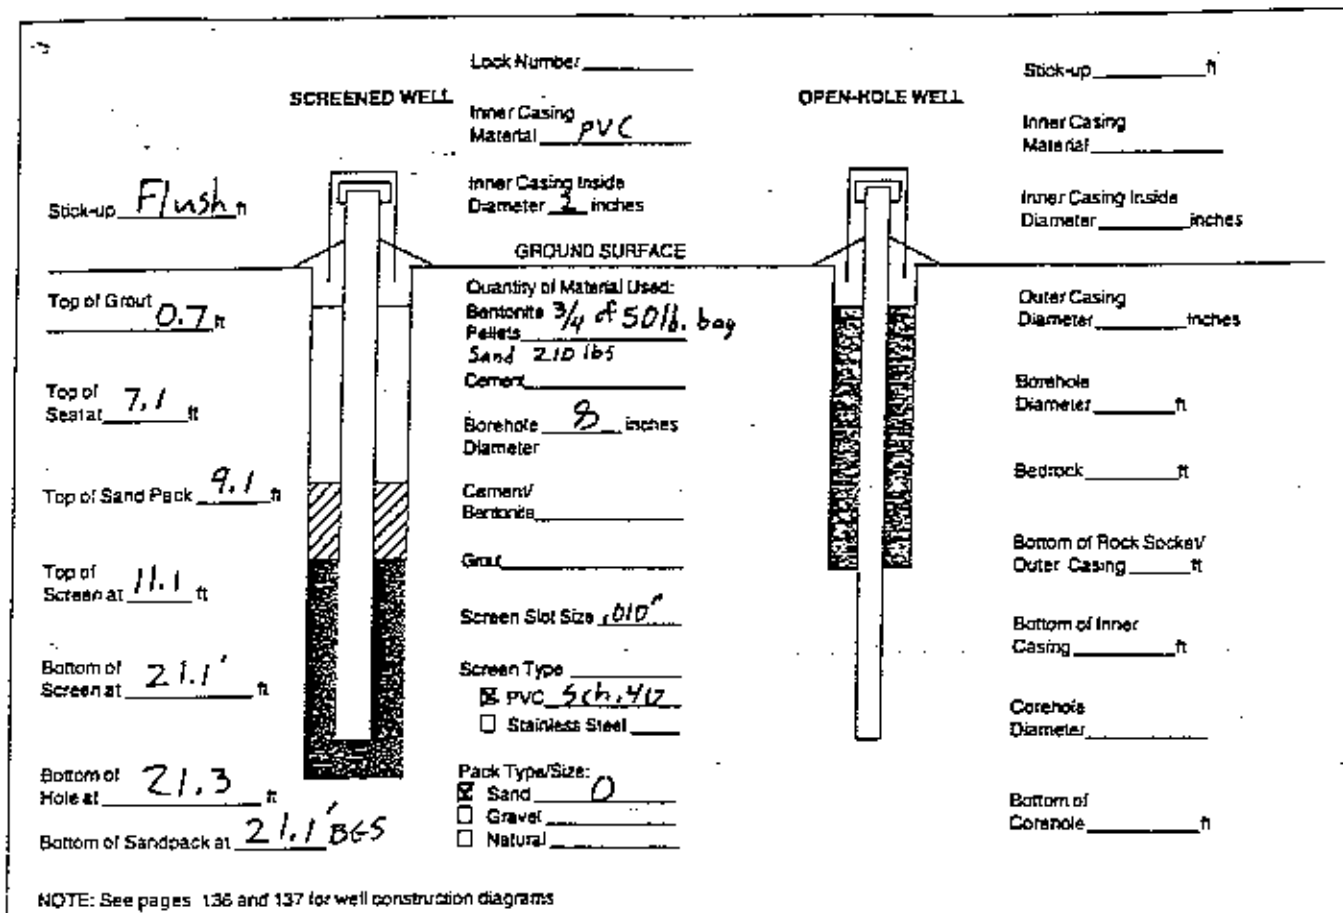 SCREENED WELL
Stick-up Flush ft
Top of Grout 0.7 ft
Top of
Seal at 7.1 ft
Top of Sand Pack 9.1 ft
Top of
Screen at 11.1 ft
Bottom of
Screen at 21.1' ft
Bottom of
Hole at 21.3 ft
Bottom of Sandpack at 21.1' BGS
Lock Number
Inner Casing
Material PVC
Inner Casing Inside
Diameter 2 inches
GROUND SURFACE
Quantity of Material Used:
Bentonite 3/4 of 50 lb. bag
Pellets
Sand 210 lbs
Cement
Borehole 8 inches
Diameter
Cement/
Bentonite
Grout
Screen Slot Size .010"
Screen Type
☒ PVC Sch. 40
☐ Stainless Steel
Pack Type/Size:
☒ Sand 0
☐ Gravel
☐ Natural
OPEN-HOLE WELL
Stick-up ft
Inner Casing
Material
Inner Casing Inside
Diameter inches
Outer Casing
Diameter inches
Borehole
Diameter ft
Bedrock ft
Bottom of Rock Socket/
Outer Casing ft
Bottom of Inner
Casing ft
Corehole
Diameter
Bottom of
Corehole ft
NOTE: See pages 136 and 137 for well construction diagrams